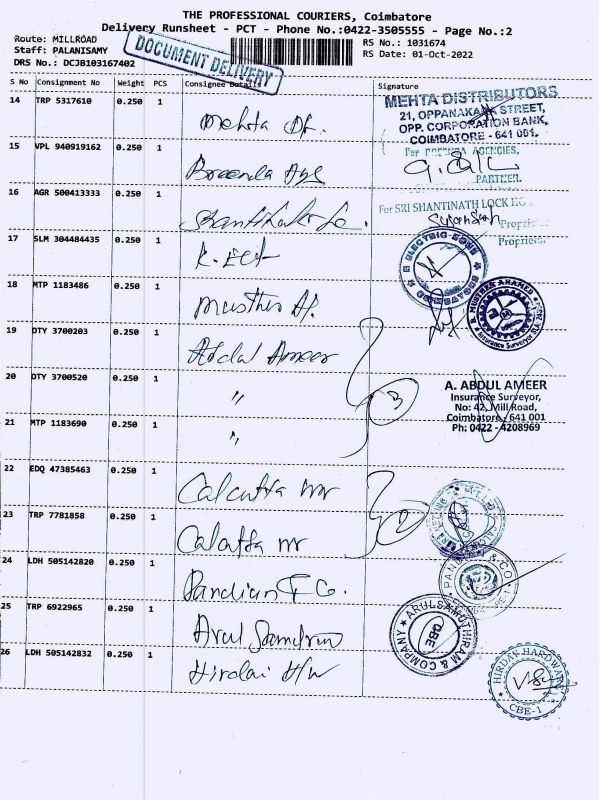 THE PROFESSIONAL COURIERS, Coimbatore
Delivery Runsheet - PCT - Phone No.:0422-3505555 - Page No.:2
Route: MILLROAD
RS No.: 1031674
Staff: PALANISAMY
RS Date: 01-Oct-2022
DRS No.: DCJB103167402
DOCUMENT DELIVERY
S No Consignment No Weight PCS Consignee Details Signature
14 TRP 5317610 0.250 1 Mehta Df.
MEHTA DISTRIBUTORS
21, OPPANAKARA STREET,
OPP. CORPORATION BANK,
COIMBATORE - 641 001.
15 VPL 940919162 0.250 1
For AGENCIES,
PARTNER.
16 AGR 500413333 0.250 1
For SRI SHANTINATH LOCK
Proprietor
17 SLM 304484435 0.250 1 K. Ect
ELECTRIC COIMBATORE
18 MTP 1183486 0.250 1
Insurance Surveyor
19 DTY 3700203 0.250 1 Abdal Ameer
20 DTY 3700520 0.250 1 "
3
A. ABDUL AMEER
Insurance Surveyor,
No: 42, Mill Road,
Coimbatore - 641 001
Ph: 0422 - 4208969
21 MTP 1183690 0.250 1 "
22 EDQ 47385463 0.250 1 Calcutta
2
23 TRP 7781858 0.250 1 Calcutta
24 LDH 505142820 0.250 1 Pandian & Co.
& CO
25 TRP 6922965 0.250 1 Arul
ARULSAMUTHIRAM & COMPANY
CBE
26 LDH 505142832 0.250 1 Hirdai H/w
HIRDAI HARDWARE
CBE-1